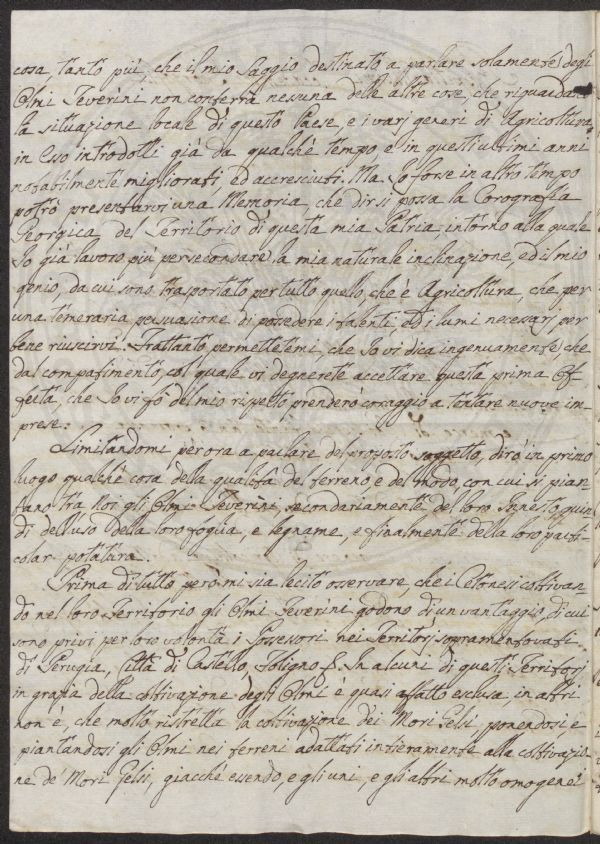 cosa, tanto più, che il mio Saggio destinato a parlare solamente degli
Olmi Teverini non conferrà nessuna delle altre cose, che riguardano
la situazione locale di questo Paese, e i varj generi di Agricoltura
in Esso introdotti già da qualche tempo e in questi ultimi anni
notabilmente migliorati, ed accresciuti. Ma Io forse in altro tempo
potrò presentarvi una Memoria, che dir si possa la Corografia
Georgica del Territorio di questa mia Patria, intorno alla quale
Io già lavoro più per secondare la mia naturale inclinazione, ed il mio
genio, da cui sono trasportato per tutto quello, che è Agricoltura, che per
una temeraria persuasione di possedere i talenti ed i lumi necessarj per
bene riuscirvi. Frattanto permettetemi, che Io vi dica ingenuamente, che
dal compatimento, col quale vi degnerete accettare questa prima Of-
ferta, che Io vi fò del mio rispetto prenderò coraggio a tentare nuove im-
prese.
Limitandomi per ora a parlare del proposto soggetto, dirò in primo
luogo qualche cosa della qualità del terreno e del modo, con cui si pian-
tano tra Noi gli Olmi Teverini, secondariamente del loro Innesto, quin-
di dell'uso della loro foglia, e legname, e finalmente della loro parti-
colar potatura.
Prima di tutto però mi sia lecito osservare, che i Cetonesi coltivan-
do nel loro Territorio gli Olmi Teverini godono di un vantaggio, di cui
sono privi per loro volontà i Possessori nei Territorj sopramentovati
di Perugia, Città di Castello, Foligno &. In alcuni di questi Territorj
in grazia della coltivazione degli Olmi è quasi affatto esclusa, in altri
non è, che molto ristretta la coltivazione dei Mori Gelsi, ponendosi e
piantandosi gli Olmi nei terreni adattati intieramente alla coltivazio-
ne de' Mori Gelsi, giacché essendo, e gli uni, e gli altri molto omogenei